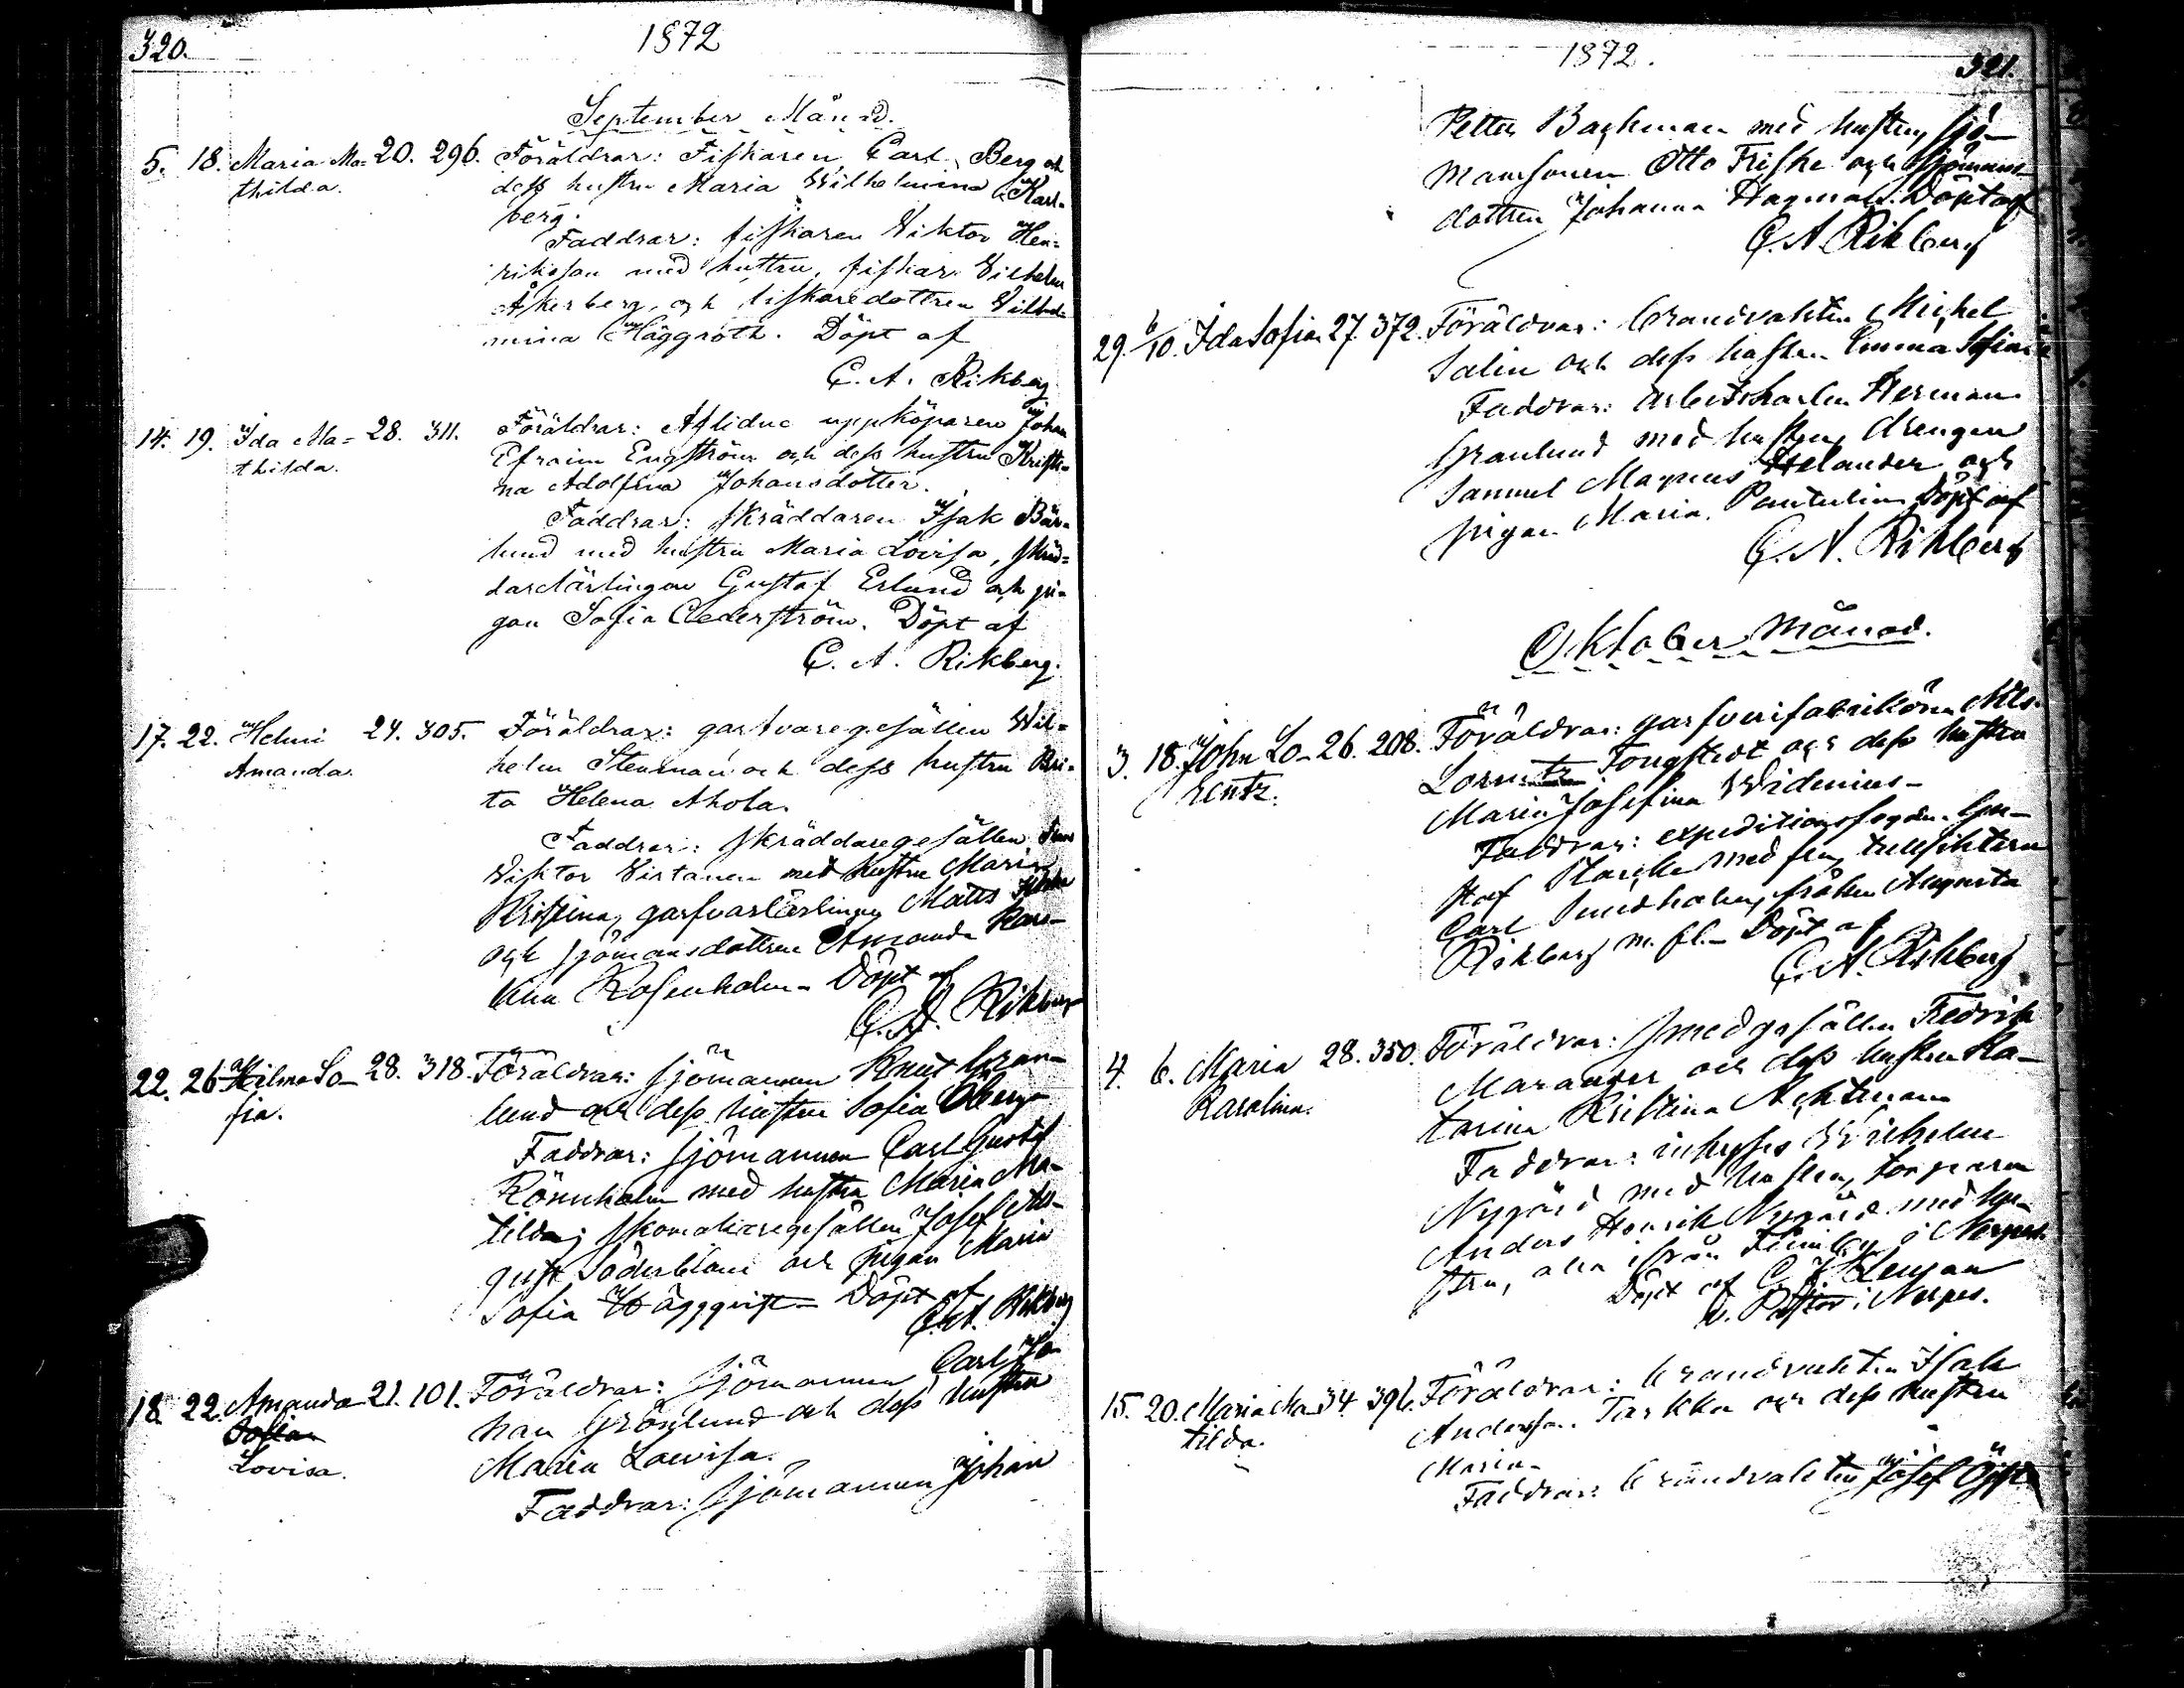 320.
1872
September Månad.
5. 18. Maria Ma- 20. 296. Föräldrar: Fiskaren Carl Berg och
thilda. dess hustru Maria Wilhelmina Karl-
berg.
Faddrar: fiskaren Viktor Hen-
riksson med hustru, fiskar. Vilhelm
Åkerberg, och fiskaredottren Vilhel-
mina Häggroth. Döpt af
C. A. Rikberg
14. 19. Ida Ma- 28. 311. Föräldrar: Aflidne uppköparen Johan
thilda. Efraim Engström och dess hustru Kristi-
na Adolfina Johansdotter.
Faddrar: skräddaren Isak Bär-
lund med hustru Maria Lovisa, skräd-
darelärlingen Gustaf Erlund och pi-
gan Sofia Cederström. Döpt af
C. A. Rikberg.
17. 22. Helmi 24. 305. Föräldrar: garfvaregesällen Wil-
Amanda. helm Stenman och dess hustru Bri-
ta Helena Ahola.
Faddrar: skräddaregesällen
Viktor Virtanen med hustru Maria
Kristina, garfvarlärlingen Matts
och sjömansdottren Amanda Karo-
lina Rosenholm. Döpt af
C. A. Rikberg
22. 26 Hilma So- 28. 318. Föräldrar: sjömannen Knut Gran-
fia. lund och dess hustru Sofia Öberg
Faddrar: sjömannen Carl Gustaf
Rönnholm med hustru Maria Ma-
tilda; skomakaregesällen Josef Au-
gust Söderblom och pigan Maria
Sofia Häggqvist. Döpt af
C. A. Rikberg
18. 22. Amanda 21. 101. Föräldrar: sjömannen Carl Jo-
Sofia han Grönlund och dess hustru
Lovisa. Maria Lovisa.
Faddrar: sjömannen Johan
1872.
321.
Petter Backman med hustru, sjö-
mansonen Otto Friske och sjömans-
dottren Johanna Hagman. Döpt af
C. A. Rikberg
29. 6/10. Ida Sofia 27. 372. Föräldrar: brandvakten Michel
Salin och dess hustru Emma Sofia
Faddrar: arbetskarlen Herman
Granlund med hustru, drengen
Samuel Magnus Helander och
pigan Maria Döpt af
C. A. Rikberg
Oktober Månad.
3. 18. John Lo- 26. 208. Föräldrar: garfverifabrikören Nils
rentz. Lorentz Tongstedt och dess hustru
Maria Josefina Widenius
Faddrar: expeditionsfogden Gu-
staf Starcke med fru,
Carl Smedholm, fröken Augusta
Rikberg m. fl. Döpt af
C. A. Rikberg
4. 6. Maria 28. 350. Föräldrar: smedgesällen Fredrik
Karolina. och dess hustru Ka-
tarina Kristina
Faddrar: inhyses Wilhelm
Nygård med hustru, torparen
Anders Henrik Nygård med hu-
stru, alla ifrån i Nerpes.
Döpt af
v. Pastor i Nerpes.
15. 20. Maria Ma- 34. 396. Föräldrar: brandvakten Isak
tilda. Andersson Tarkka och dess hustru
Maria
Faddrar: brandvakten Josef